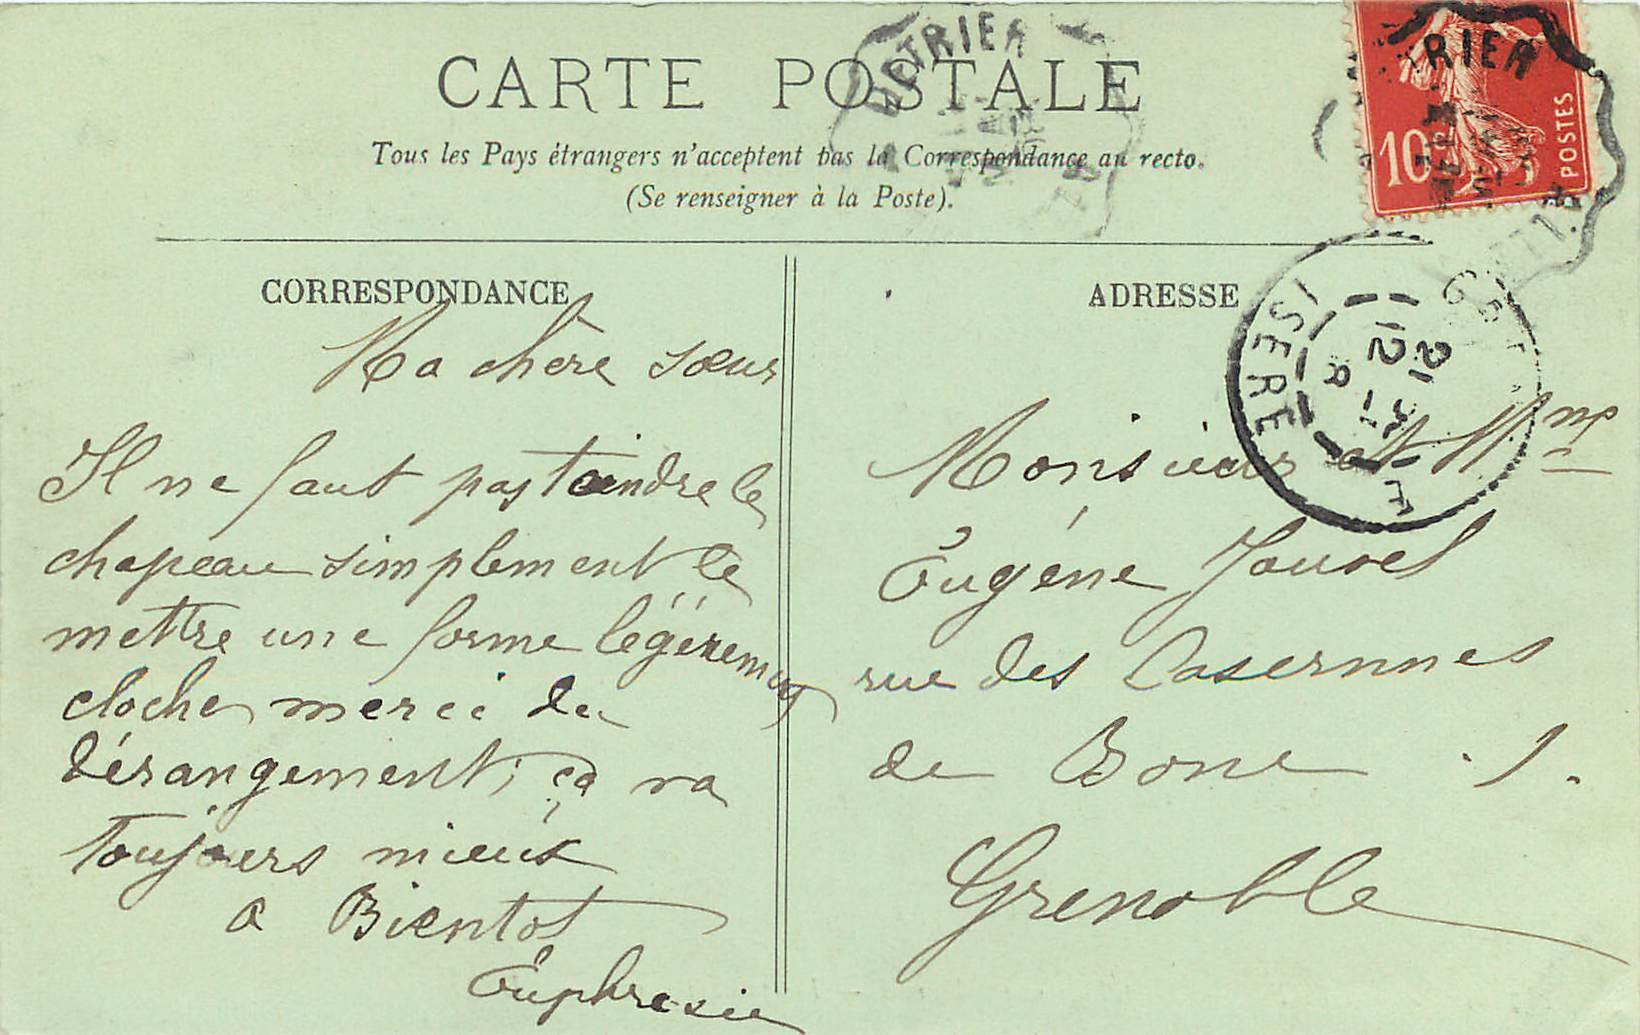 CARTE POSTALE
Tous les Pays étrangers n'acceptent pas la Correspondance au recto.
(Se renseigner à la Poste).
RIER
10
POSTES
CORRESPONDANCE
Ma chère sœur
Il ne faut pas teindre le
chapeau simplement le
mettre une forme légèrement
cloche merci du
dérangement, ça va
toujours mieux
a Bientot
Euphrasie
ADRESSE
ISERE
21
12
Monsieur et Mme
Eugène
rue des Casernnes
de Bone . 1.
Grenoble